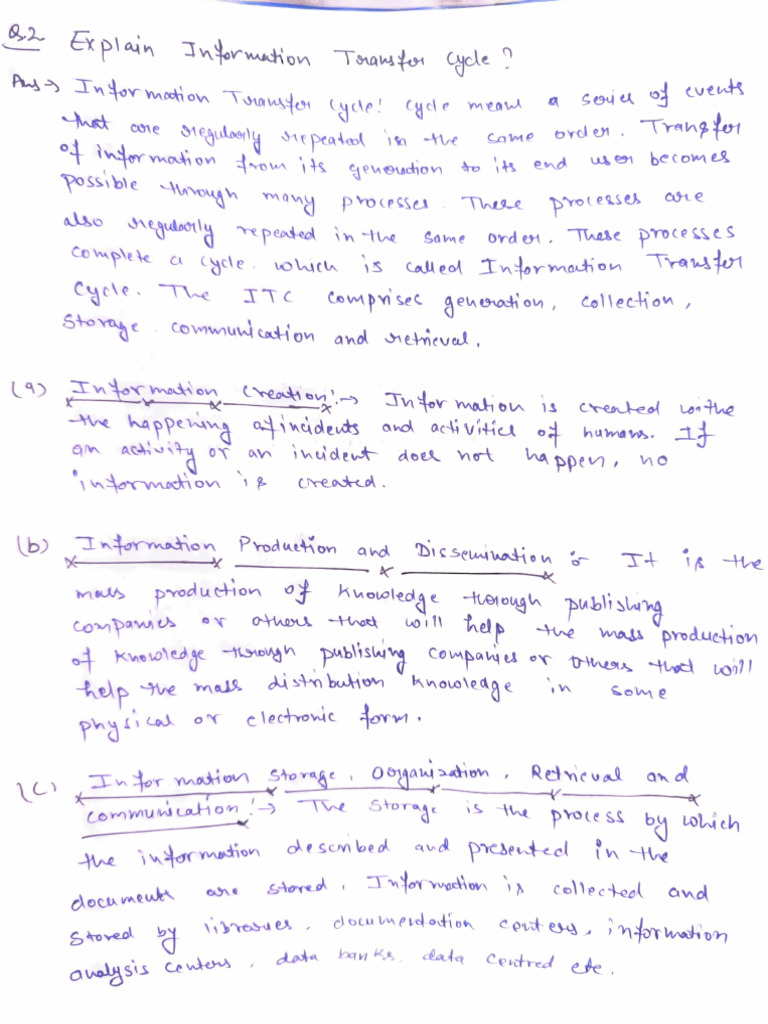 Q.2 Explain Information Transfer Cycle?
Ans→ Information Transfer Cycle! Cycle means a series of events
that are regularly repeated in the same order. Transfer
of information from its generation to its end user becomes
possible through many processes. These processes are
also regularly repeated in the same order. These processes
complete a cycle. which is called Information Transfer
Cycle. The ITC comprises generation, collection,
Storage communication and retrieval.
(a) Information Creation:→ Information is created with the
the happening of incidents and activities of humans. If
an activity or an incident does not happen, no
information is created.
(b) Information Production and Dissemination :- It is the
mass production of knowledge through publishing
companies or others that will help the mass production
of knowledge through publishing companies or others that will
help the mass distribution knowledge in some
physical or electronic form.
(C) Information Storage, Organization, Retrieval and
Communication!→ The Storage is the process by which
the information described and presented in the
documents are stored. Information is collected and
stored by libraries, documentation centers, information
analysis centers, data banks, data centred etc.